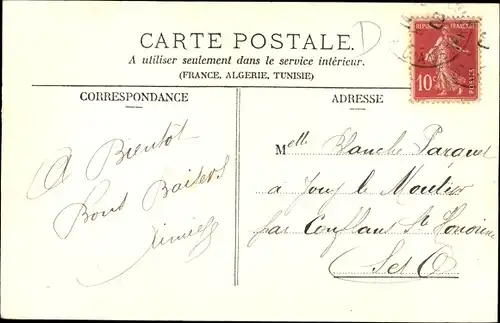 D
CARTE POSTALE.
A utiliser seulement dans le service intérieur.
(FRANCE, ALGERIE, TUNISIE)
CORRESPONDANCE
ADRESSE
REPUBLIQUE FRANÇAISE
10c
POSTES
A Bientôt
Bons Baisers
Melle Blanche
à Jouy le Moutier
par Conflans Ste Honorine
S et O